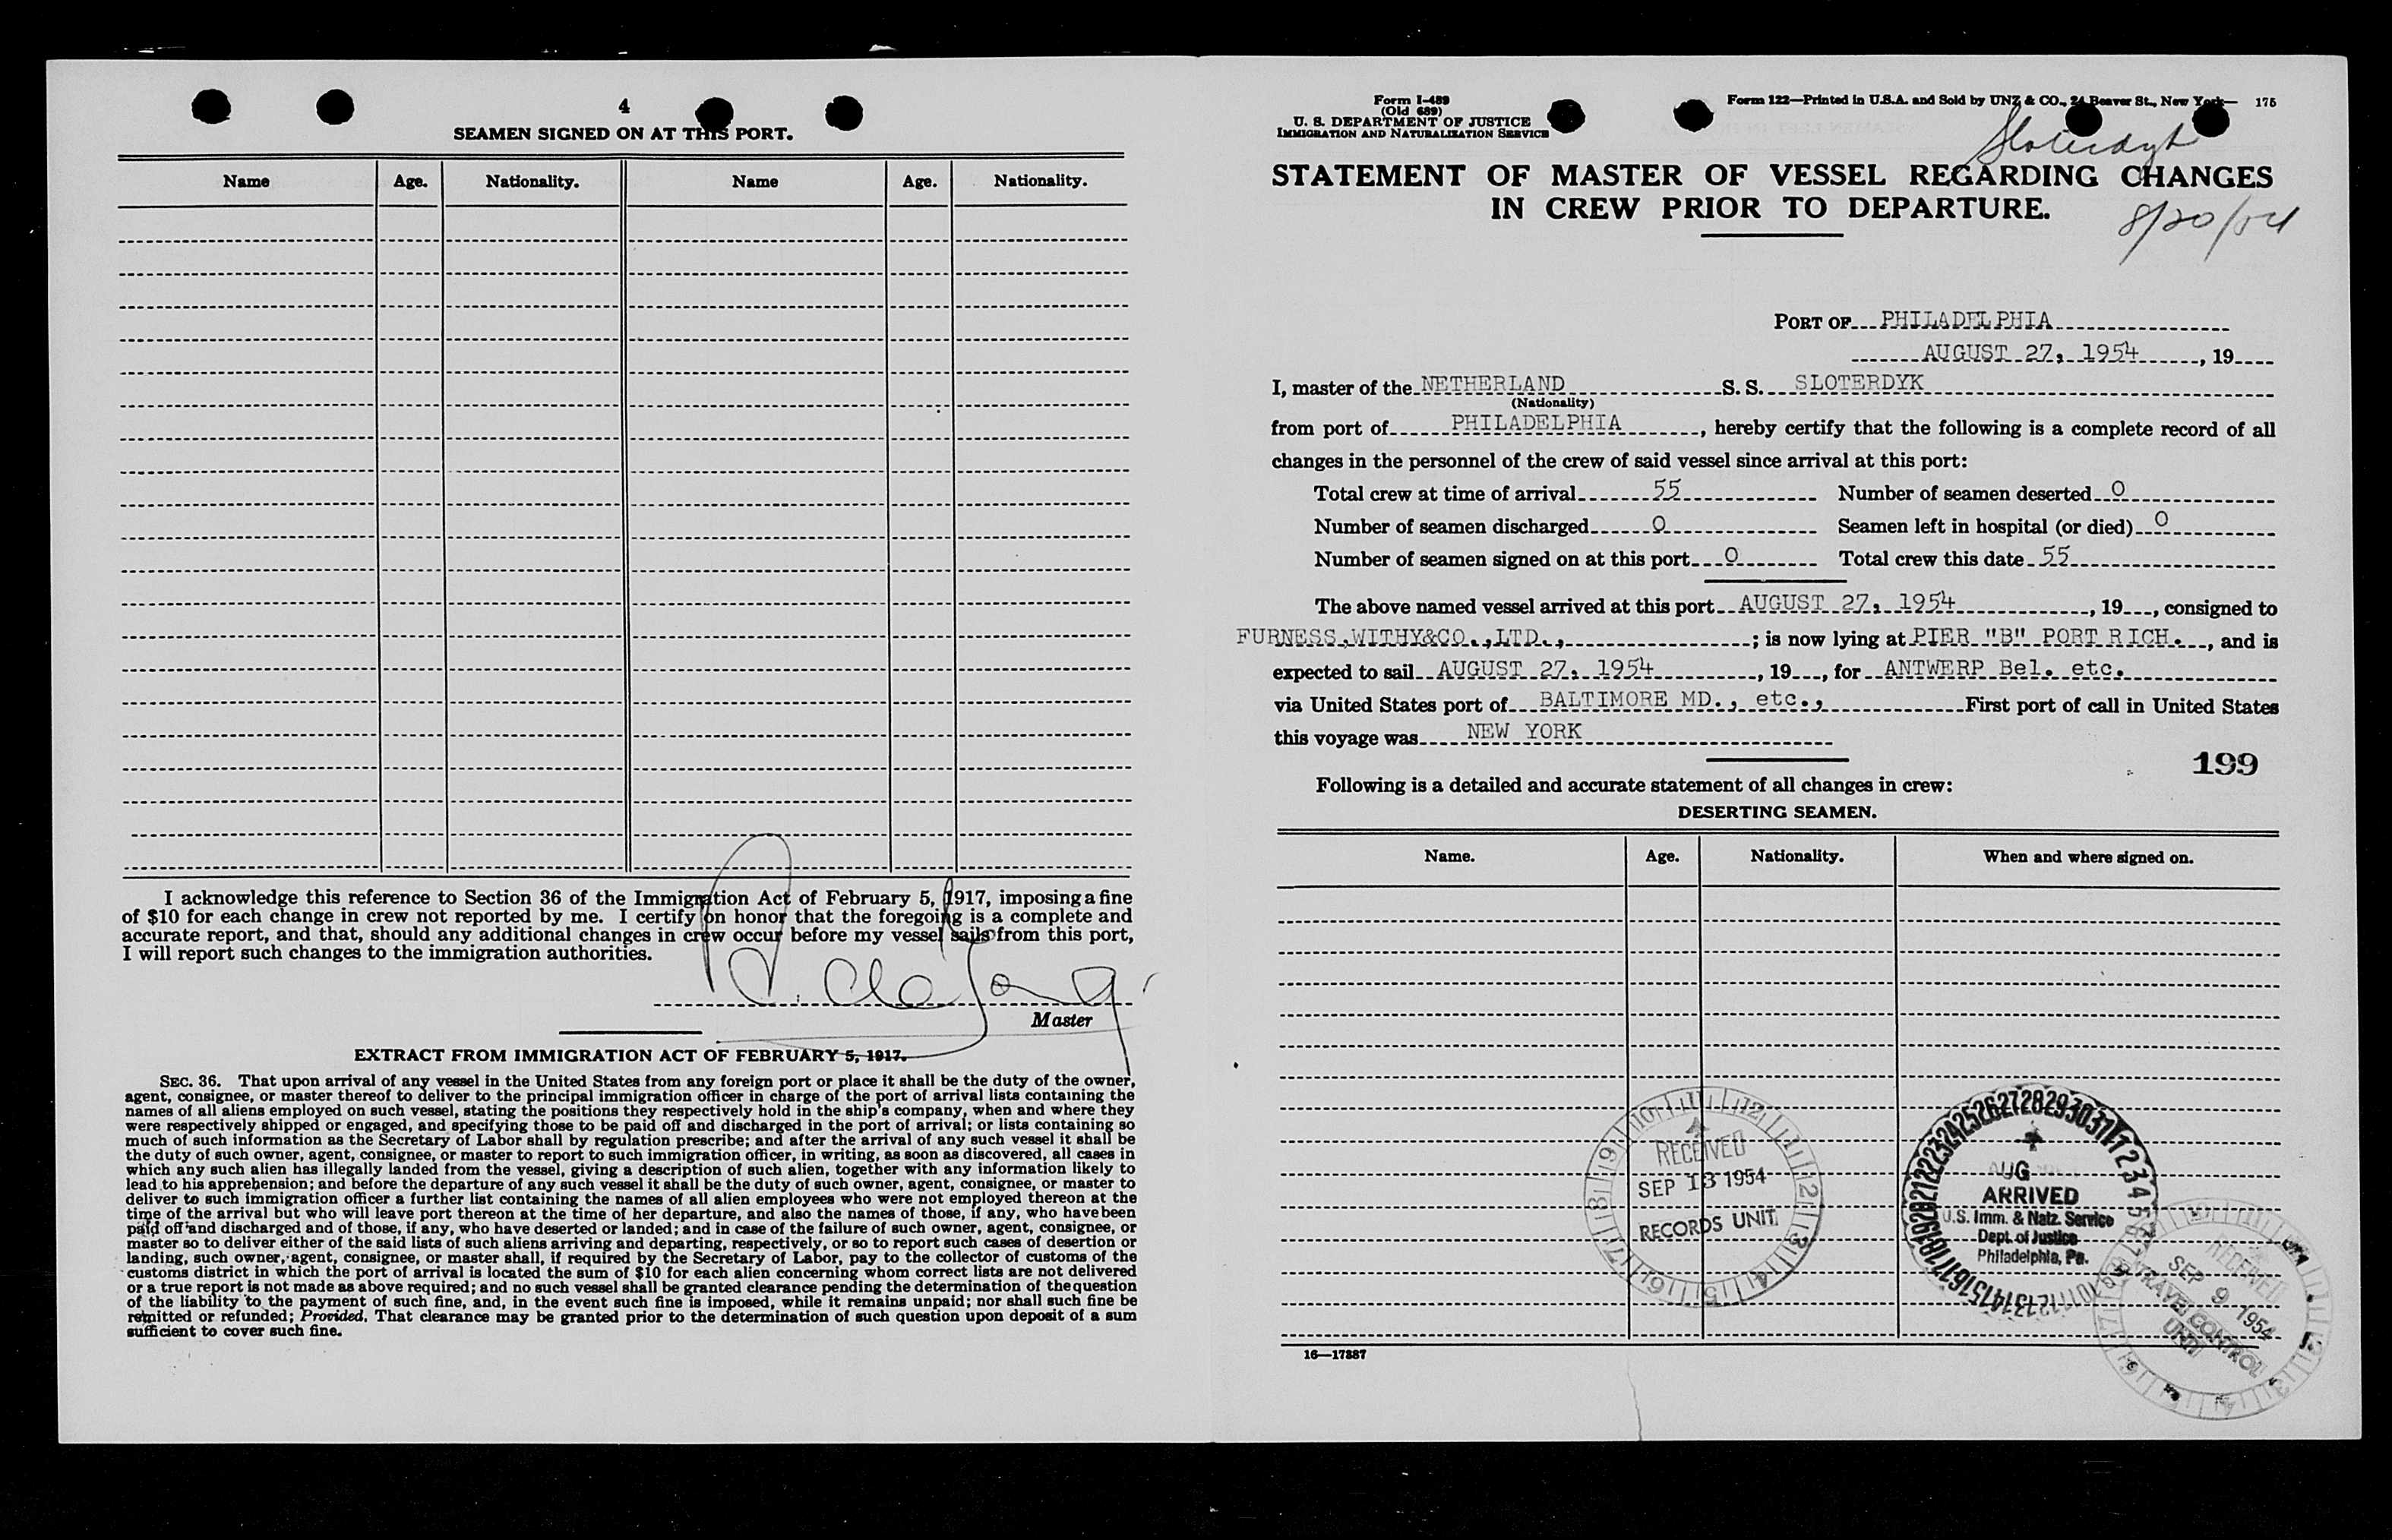 4
SEAMEN SIGNED ON AT THIS PORT.
Name Age. Nationality. Name Age. Nationality.
I acknowledge this reference to Section 36 of the Immigration Act of February 5, 1917, imposing a fine
of $10 for each change in crew not reported by me. I certify on honor that the foregoing is a complete and
accurate report, and that, should any additional changes in crew occur before my vessel sails from this port,
I will report such changes to the immigration authorities.
Master
EXTRACT FROM IMMIGRATION ACT OF FEBRUARY 5, 1917.
SEC. 36. That upon arrival of any vessel in the United States from any foreign port or place it shall be the duty of the owner,
agent, consignee, or master thereof to deliver to the principal immigration officer in charge of the port of arrival lists containing the
names of all aliens employed on such vessel, stating the positions they respectively hold in the ship's company, when and where they
were respectively shipped or engaged, and specifying those to be paid off and discharged in the port of arrival; or lists containing so
much of such information as the Secretary of Labor shall by regulation prescribe; and after the arrival of any such vessel it shall be
the duty of such owner, agent, consignee, or master to report to such immigration officer, in writing, as soon as discovered, all cases in
which any such alien has illegally landed from the vessel, giving a description of such alien, together with any information likely to
lead to his apprehension; and before the departure of any such vessel it shall be the duty of such owner, agent, consignee, or master to
deliver to such immigration officer a further list containing the names of all alien employees who were not employed thereon at the
time of the arrival but who will leave port thereon at the time of her departure, and also the names of those, if any, who have been
paid off and discharged and of those, if any, who have deserted or landed; and in case of the failure of such owner, agent, consignee, or
master so to deliver either of the said lists of such aliens arriving and departing, respectively, or so to report such cases of desertion or
landing, such owner, agent, consignee, or master shall, if required by the Secretary of Labor, pay to the collector of customs of the
customs district in which the port of arrival is located the sum of $10 for each alien concerning whom correct lists are not delivered
or a true report is not made as above required; and no such vessel shall be granted clearance pending the determination of the question
of the liability to the payment of such fine, and, in the event such fine is imposed, while it remains unpaid; nor shall such fine be
remitted or refunded; Provided, That clearance may be granted prior to the determination of such question upon deposit of a sum
sufficient to cover such fine.
Form I-489
(Old 689)
U. S. DEPARTMENT OF JUSTICE
IMMIGRATION AND NATURALIZATION SERVICE
Form 122—Printed in U.S.A. and Sold by UNZ & CO., 24 Beaver St., New York— 175
Sloterdyk
STATEMENT OF MASTER OF VESSEL REGARDING CHANGES
IN CREW PRIOR TO DEPARTURE.
8/20/54
PORT OF PHILADELPHIA
AUGUST 27, 1954, 19
I, master of the NETHERLAND S. S. SLOTERDYK
(Nationality)
from port of PHILADELPHIA, hereby certify that the following is a complete record of all
changes in the personnel of the crew of said vessel since arrival at this port:
Total crew at time of arrival 55 Number of seamen deserted 0
Number of seamen discharged 0 Seamen left in hospital (or died) 0
Number of seamen signed on at this port 0 Total crew this date 55
The above named vessel arrived at this port AUGUST 27, 1954, 19, consigned to
FURNESS,WITHY&CO.,LTD., ; is now lying at PIER "B" PORT RICH., and is
expected to sail AUGUST 27, 1954, 19, for ANTWERP Bel. etc.
via United States port of BALTIMORE MD., etc., First port of call in United States
this voyage was NEW YORK
199
Following is a detailed and accurate statement of all changes in crew:
DESERTING SEAMEN.
Name. Age. Nationality. When and where signed on.
RECEIVED
SEP 13 1954
RECORDS UNIT
AUG
ARRIVED
U.S. Imm. & Natz. Service
Dept. of Justice
Philadelphia, Pa.
RECEIVED
SEP 9 1954
TRAVEL CONTROL
UNIT
16—17887